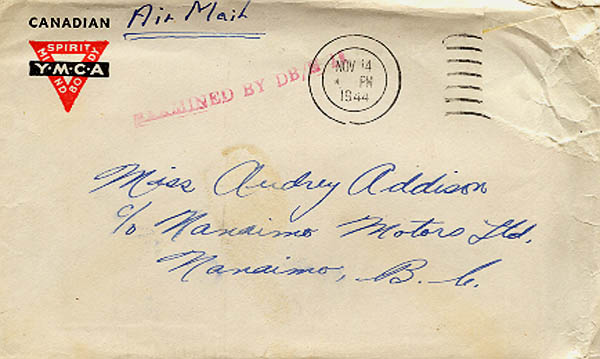 CANADIAN Air Mail
SPIRIT
MIND Y·M·C·A BODY
EXAMINED BY DB/
NOV 14
PM
1944
Miss Audrey Addison
c/o Nanaimo Motors Ltd.
Nanaimo, B.C.